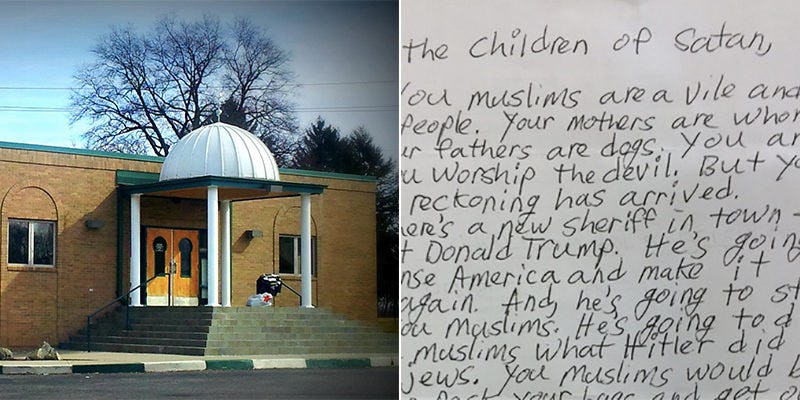 the children of Satan,
You muslims are a vile and
people. Your mothers are whor
ur fathers are dogs. You ar
u worship the devil. But yo
reckoning has arrived.
ere's a new sheriff in town -
t Donald Trump. He's going
nse America and make it
again. And, he's going to st
ou muslims. He's going to d
muslims what Hitler did
jews. You muslims would b
Pack your bags and get ou